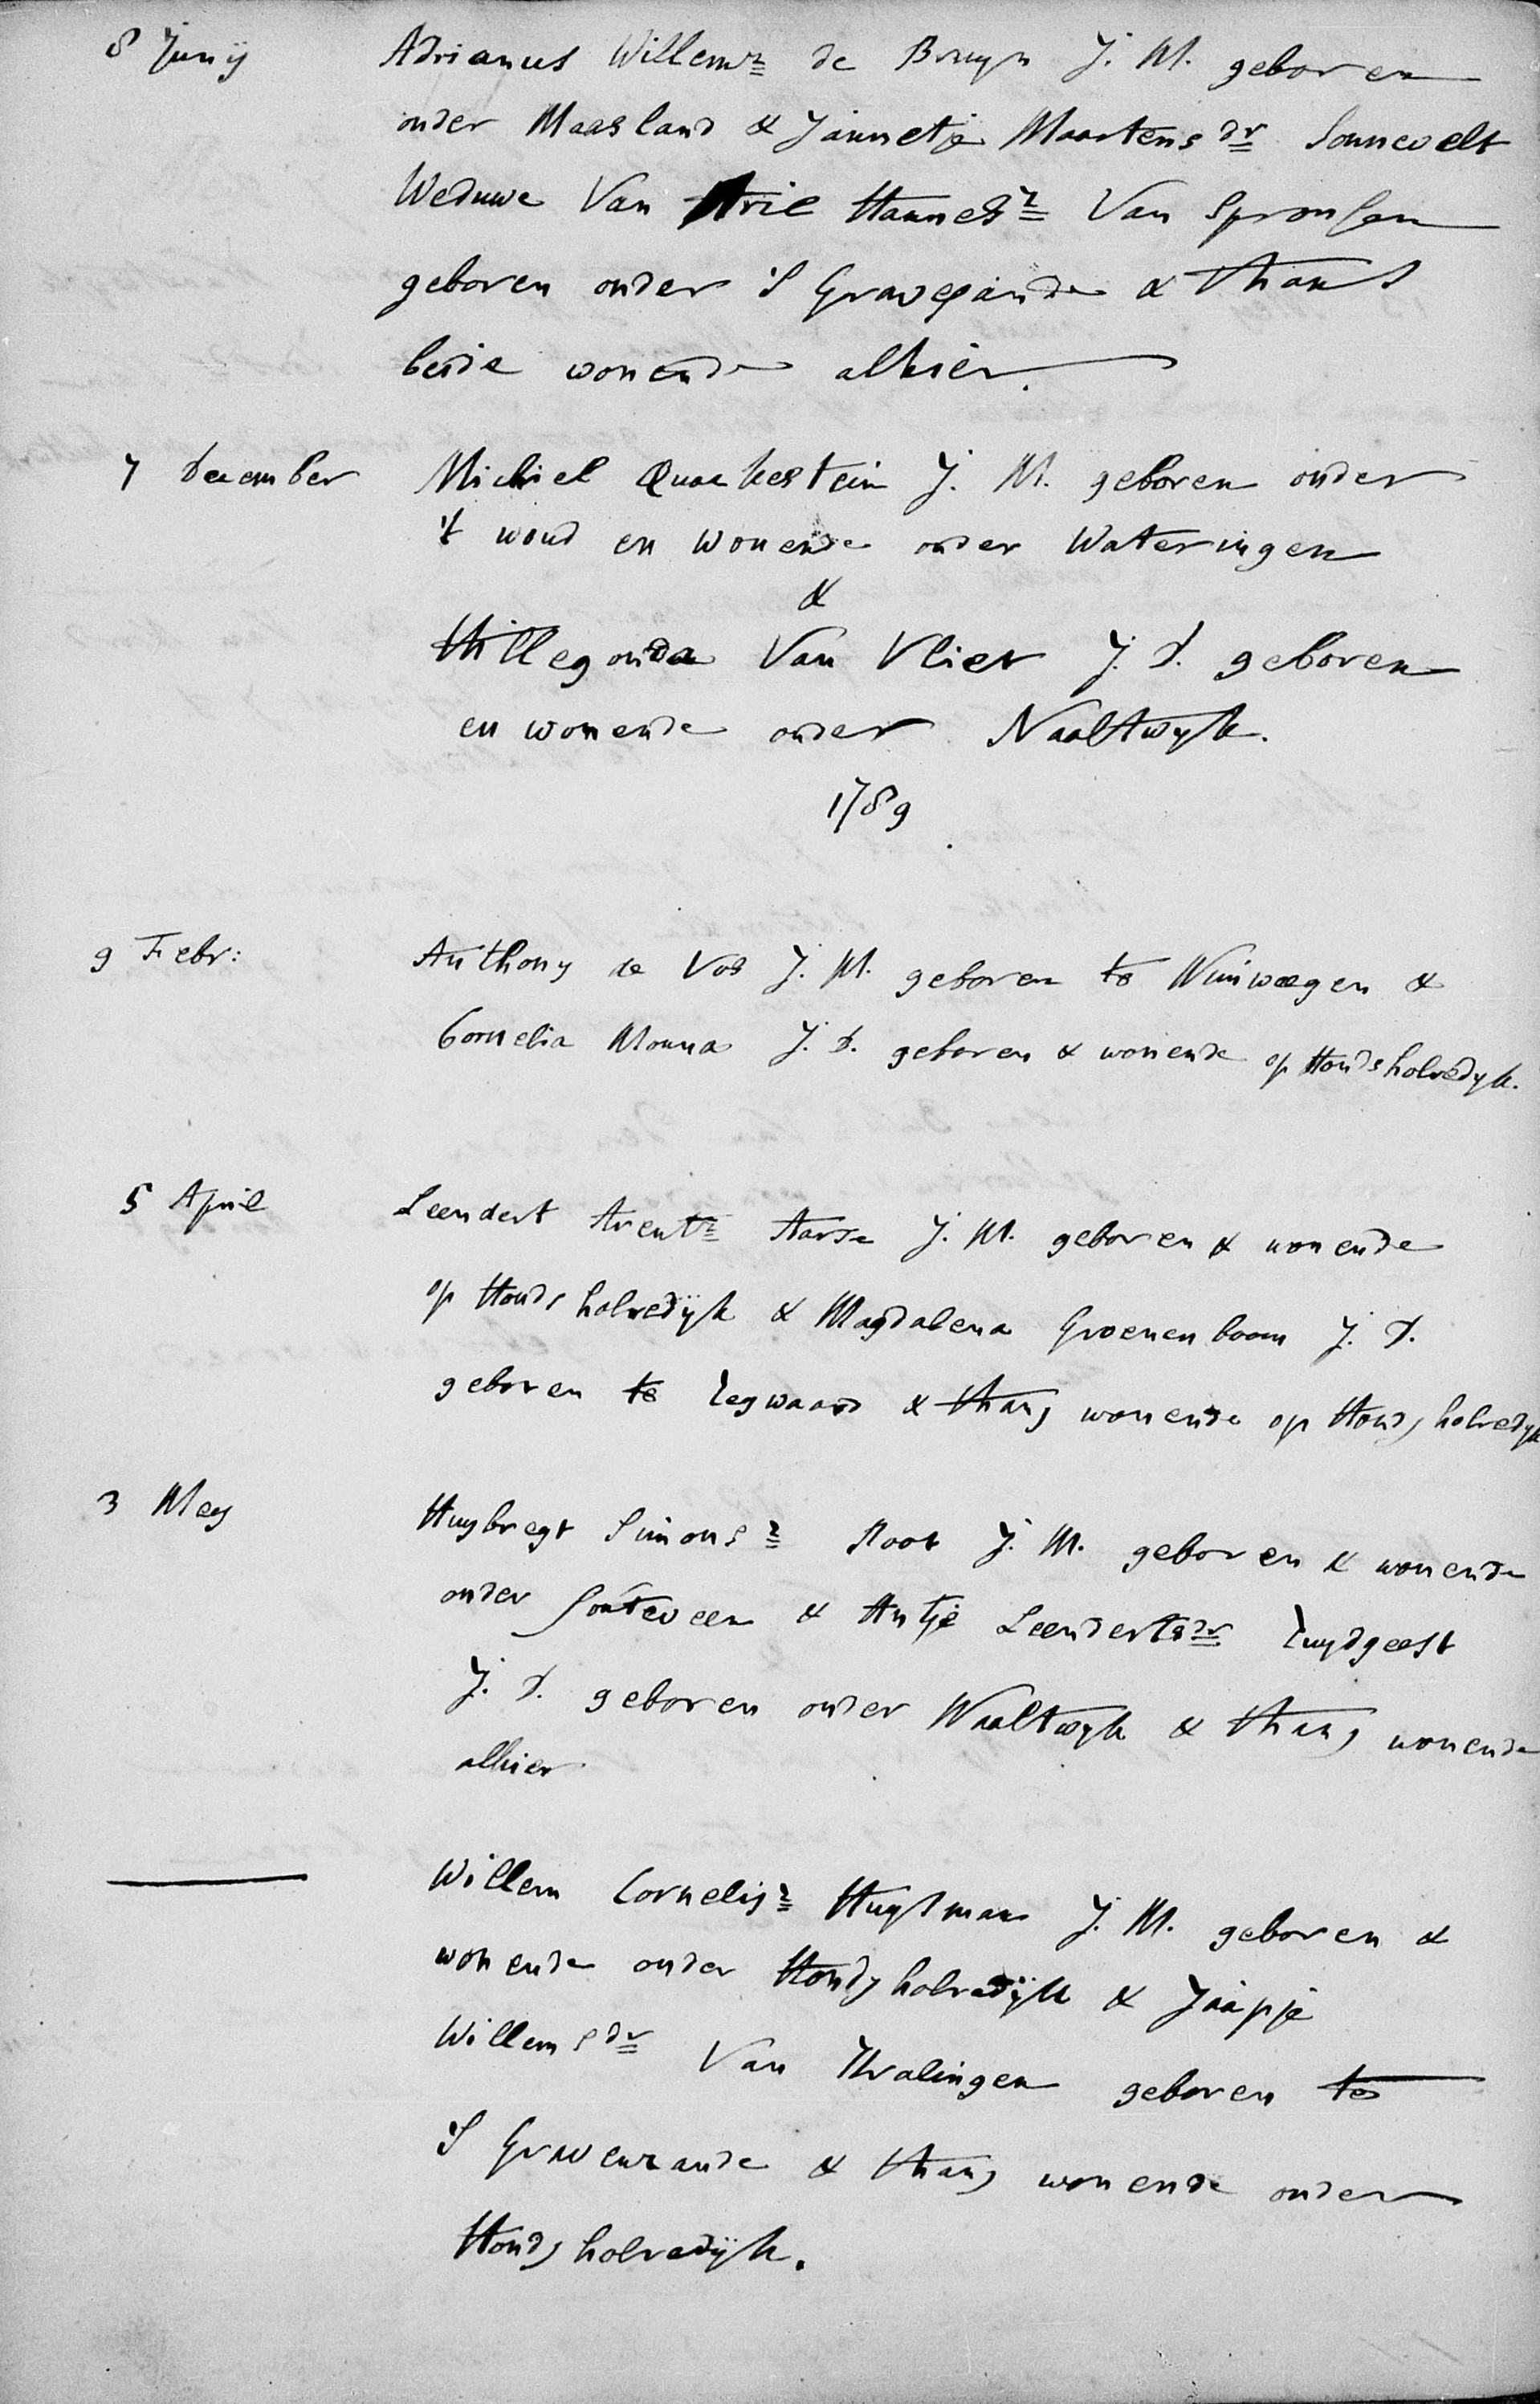 8 Junij Adrianus Willemsz de Bruyn J. M. geboren
onder Maasland & Jannetje Maartensdr Sonnevelt
Weduwe Van Arie Hannesz Van Spronsen
geboren onder 'S Gravesande & thans
beide wonende alhier.
7 December Michiel Quakestein J. M. geboren onder
't woud en wonende onder Wateringen
&
Hillegonda Van Vliet J. D. geboren
en wonende onder Naaltwyk.
1789
9 Febr: Anthony de Vos J. M. geboren te Nimwegen &
Cornelia Monna J. D. geboren & wonende op Hondsholredyk.
5 April Leendert Arentz Aarse J. M. geboren & wonende
op Hondsholredijk & Magdalena Groenenboom J. D.
geboren te Zegwaard & thans wonende op Hondsholredyk
3 Mey Huybregt Simonsz Root J. M. geboren & wonende
onder Souteveen & Antje Leendertsdr Zuydgeest
J. D. geboren onder Naaltwyk & thans wonende
alhier
Willem Cornelisz Huysman J. M. geboren &
wonende onder Hondsholredijk & Jaapje
Willemsdr Van Kralingen geboren te
'S Gravenzande & thans wonende onder
Hondsholredijk.